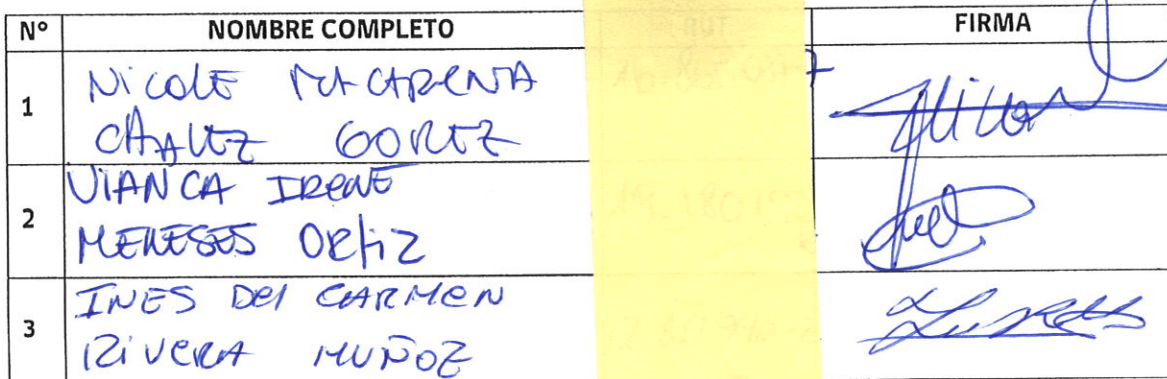 N° NOMBRE COMPLETO FIRMA
1
NICOLE MACARENA
CHAVEZ GOMEZ
2
VIANCA IRENE
MENESES ORTIZ
3
INES DEL CARMEN
RIVERA MUÑOZ